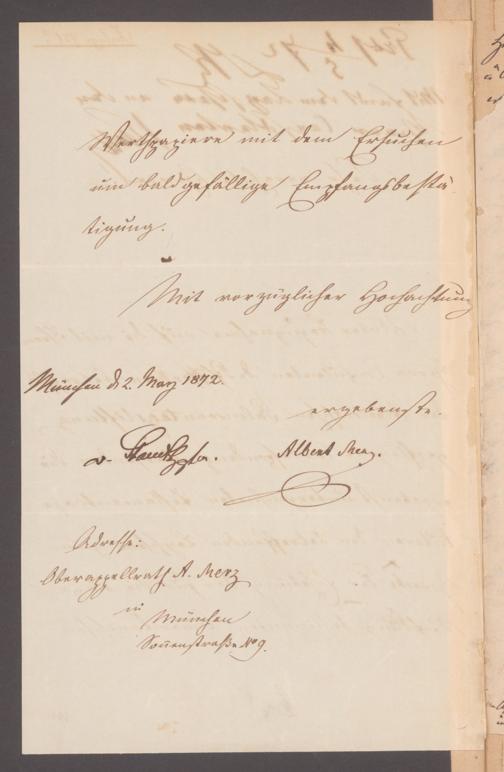 Werthpapiere mit dem Ersuchen
um baldgefällige Empfangsbestä-
tigung.
Mit vorzüglicher Hochachtung
München d 2. März 1872.
ergebenste.
v. Albert Merz.
Adresse:
Oberappellrath A. Merz
in
München
Sonnenstraße No 9.